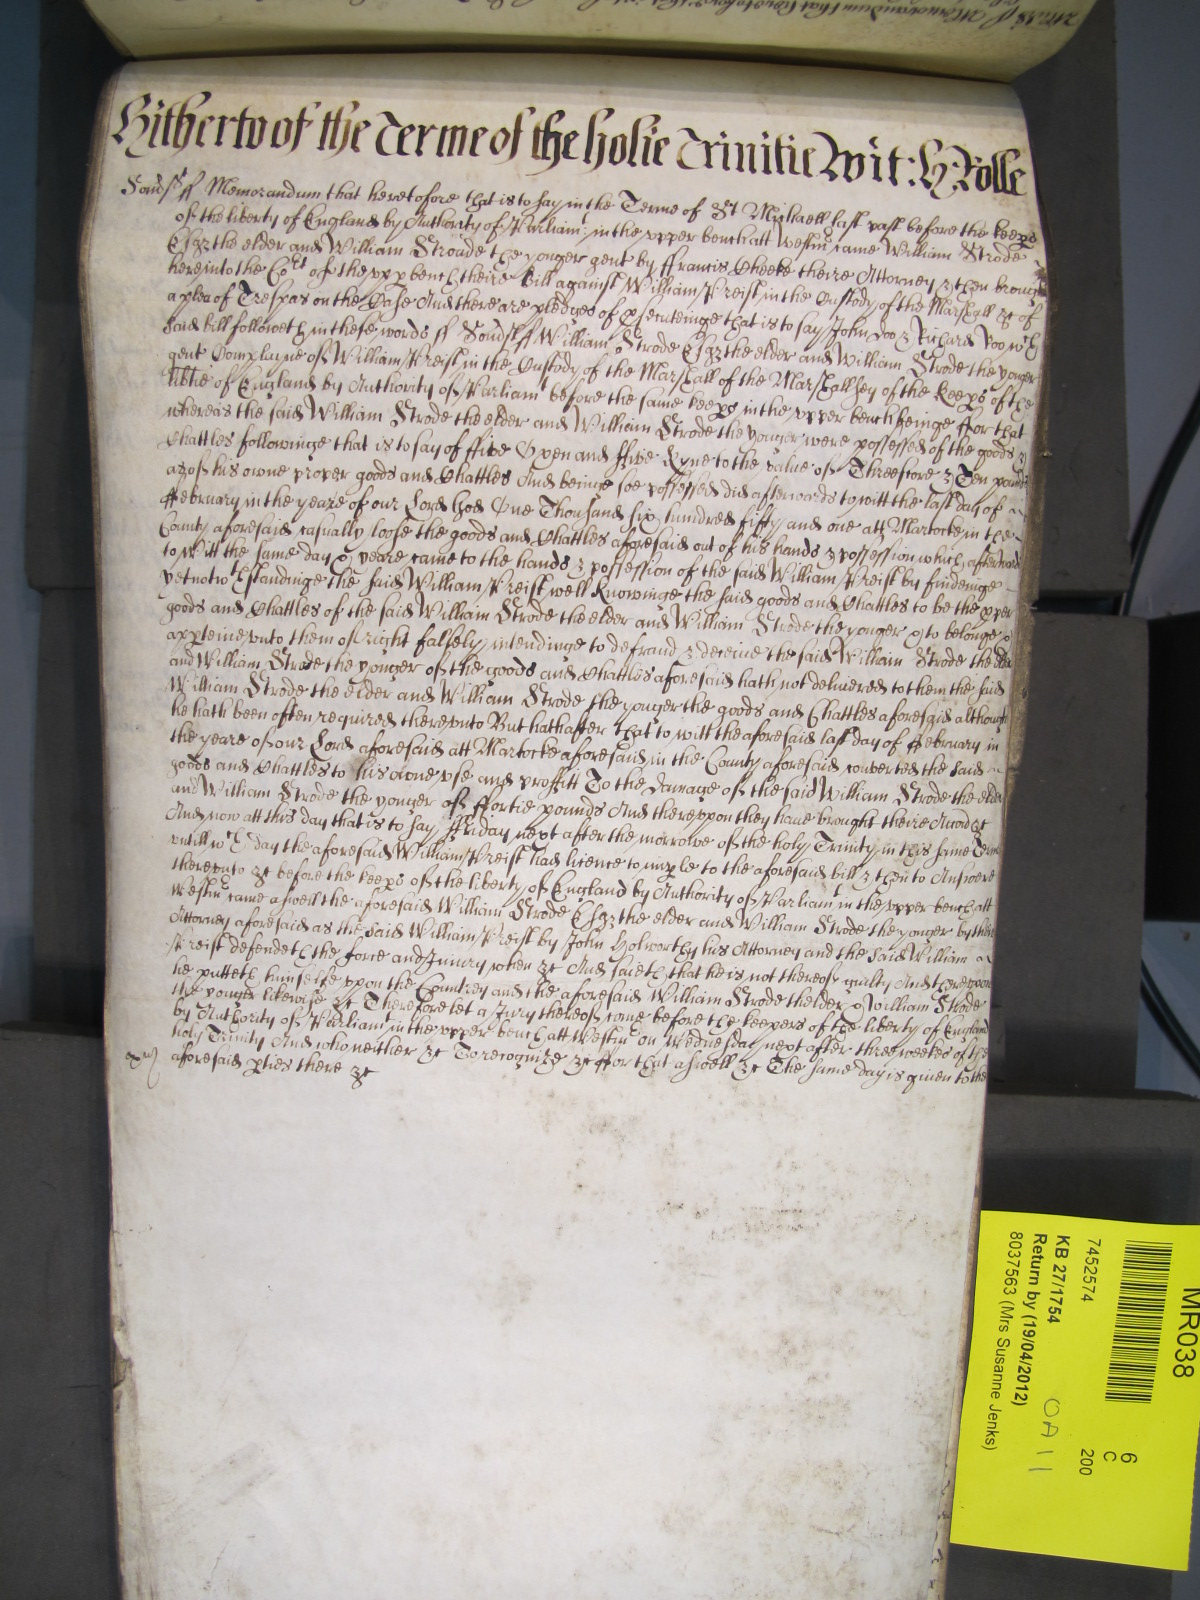 Hitherto of the Terme of the holie Trinitie Wit: H: Rolle
Somst ss Memorandum that heretofore that is to say in the Terme of St Michaell last past before the keeps
of the liberty of England by Authority of Parliamt in the upper bench att Westmr came William Strode
Esqr the elder and William Stroude the yonger gent by ffrancis Cheeke theire Attorney & then brought
here into the Cort of the upp bench theire Bill against William Preist in the Custody of the Marshall &c of
a plea of Trespas on the Case And there are pledges of prsecuteinge that is to say John Doo & Richard Roo wch
said bill followeth in these words ss Somst ss William Strode Esqr the elder and William Strode the yonger
gent Complayne of William Preist in the Custody of the Marshall of the Marshallsey of the keeps of the
libtie of England by Authority of Parliamt before the same keeps in the upper bench beinge ffor that
whereas the said William Strode the elder and William Strode the yonger were possessed of the goods &
Chattles followinge that is to say of ffive Oxen and ffive Kyne to the value of Threescore & Ten pounds
as of his owne proper goods and Chattles And beinge soe possessed did afterwards to witt the last day of
ffebruary in the yeare of our Lord God One Thousand six hundred fifty and one att Martocke in the
County aforesaid casually loose the goods and Chattles aforesaid out of his hands & possession which afterwards
to Witt the same day & yeare came to the hands & possession of the said William Preist by findeinge
yet notwthstandinge the said William Preist well knowinge the said goods and Chattles to be the pper
goods and Chattles of the said William Strode the elder and William Strode the yonger & to belonge &
apptaine unto them of right falsely intendinge to defraud & deceive the said William Strode the elder
and William Strode the yonger of the goods and Chattles aforesaid hath not delivered to them the said
William Strode the elder and William Strode the yonger the goods and Chattles aforesaid although
he hath been often required thereunto But hath after that to witt the aforesaid last day of ffebruary in
the yeare of our Lord aforesaid att Martocke aforesaid in the County aforesaid converted the said
goods and Chattles to his owne use and proffitt To the damage of the said William Strode the elder
and William Strode the yonger of ffortie pounds And thereupon they have brought theire Accon &c
And now att this day that is to say ffriday next after the morrowe of the holy Trinity in this same Terme
untill wch day the aforesaid William Preist had licence to imple to the aforesaid bill & then to Answere
thereunto &c before the keeps of the liberty of England by Authority of Parliamt in the upper bench att
Westmr came aswell the aforesaid William Strode Esqr the elder and William Strode the yonger by their
Attorney aforesaid as the said William Preist by John Holworthy his Attorney and the said William
Preist defendeth the force and Iniury when &c And saieth that he is not thereof guilty And thereupon
he putteth himselfe upon the Countrey and the aforesaid William Strode thelder & William Strode
the yonger likewise &c Therefore let a Jury thereof come before the keepers of the liberty of England
by Authority of Parliamt in the upper bench att Westmr on Wednesday next after three weekes of the
holy Trinity And who neither &c To recognize &c ffor that aswell &c The same day is given to the
aforesaid pties there &c
MR038
6
C
200
7452574
KB 27/1754
OA11
Return by (19/04/2012)
8037563 (Mrs Susanne Jenks)